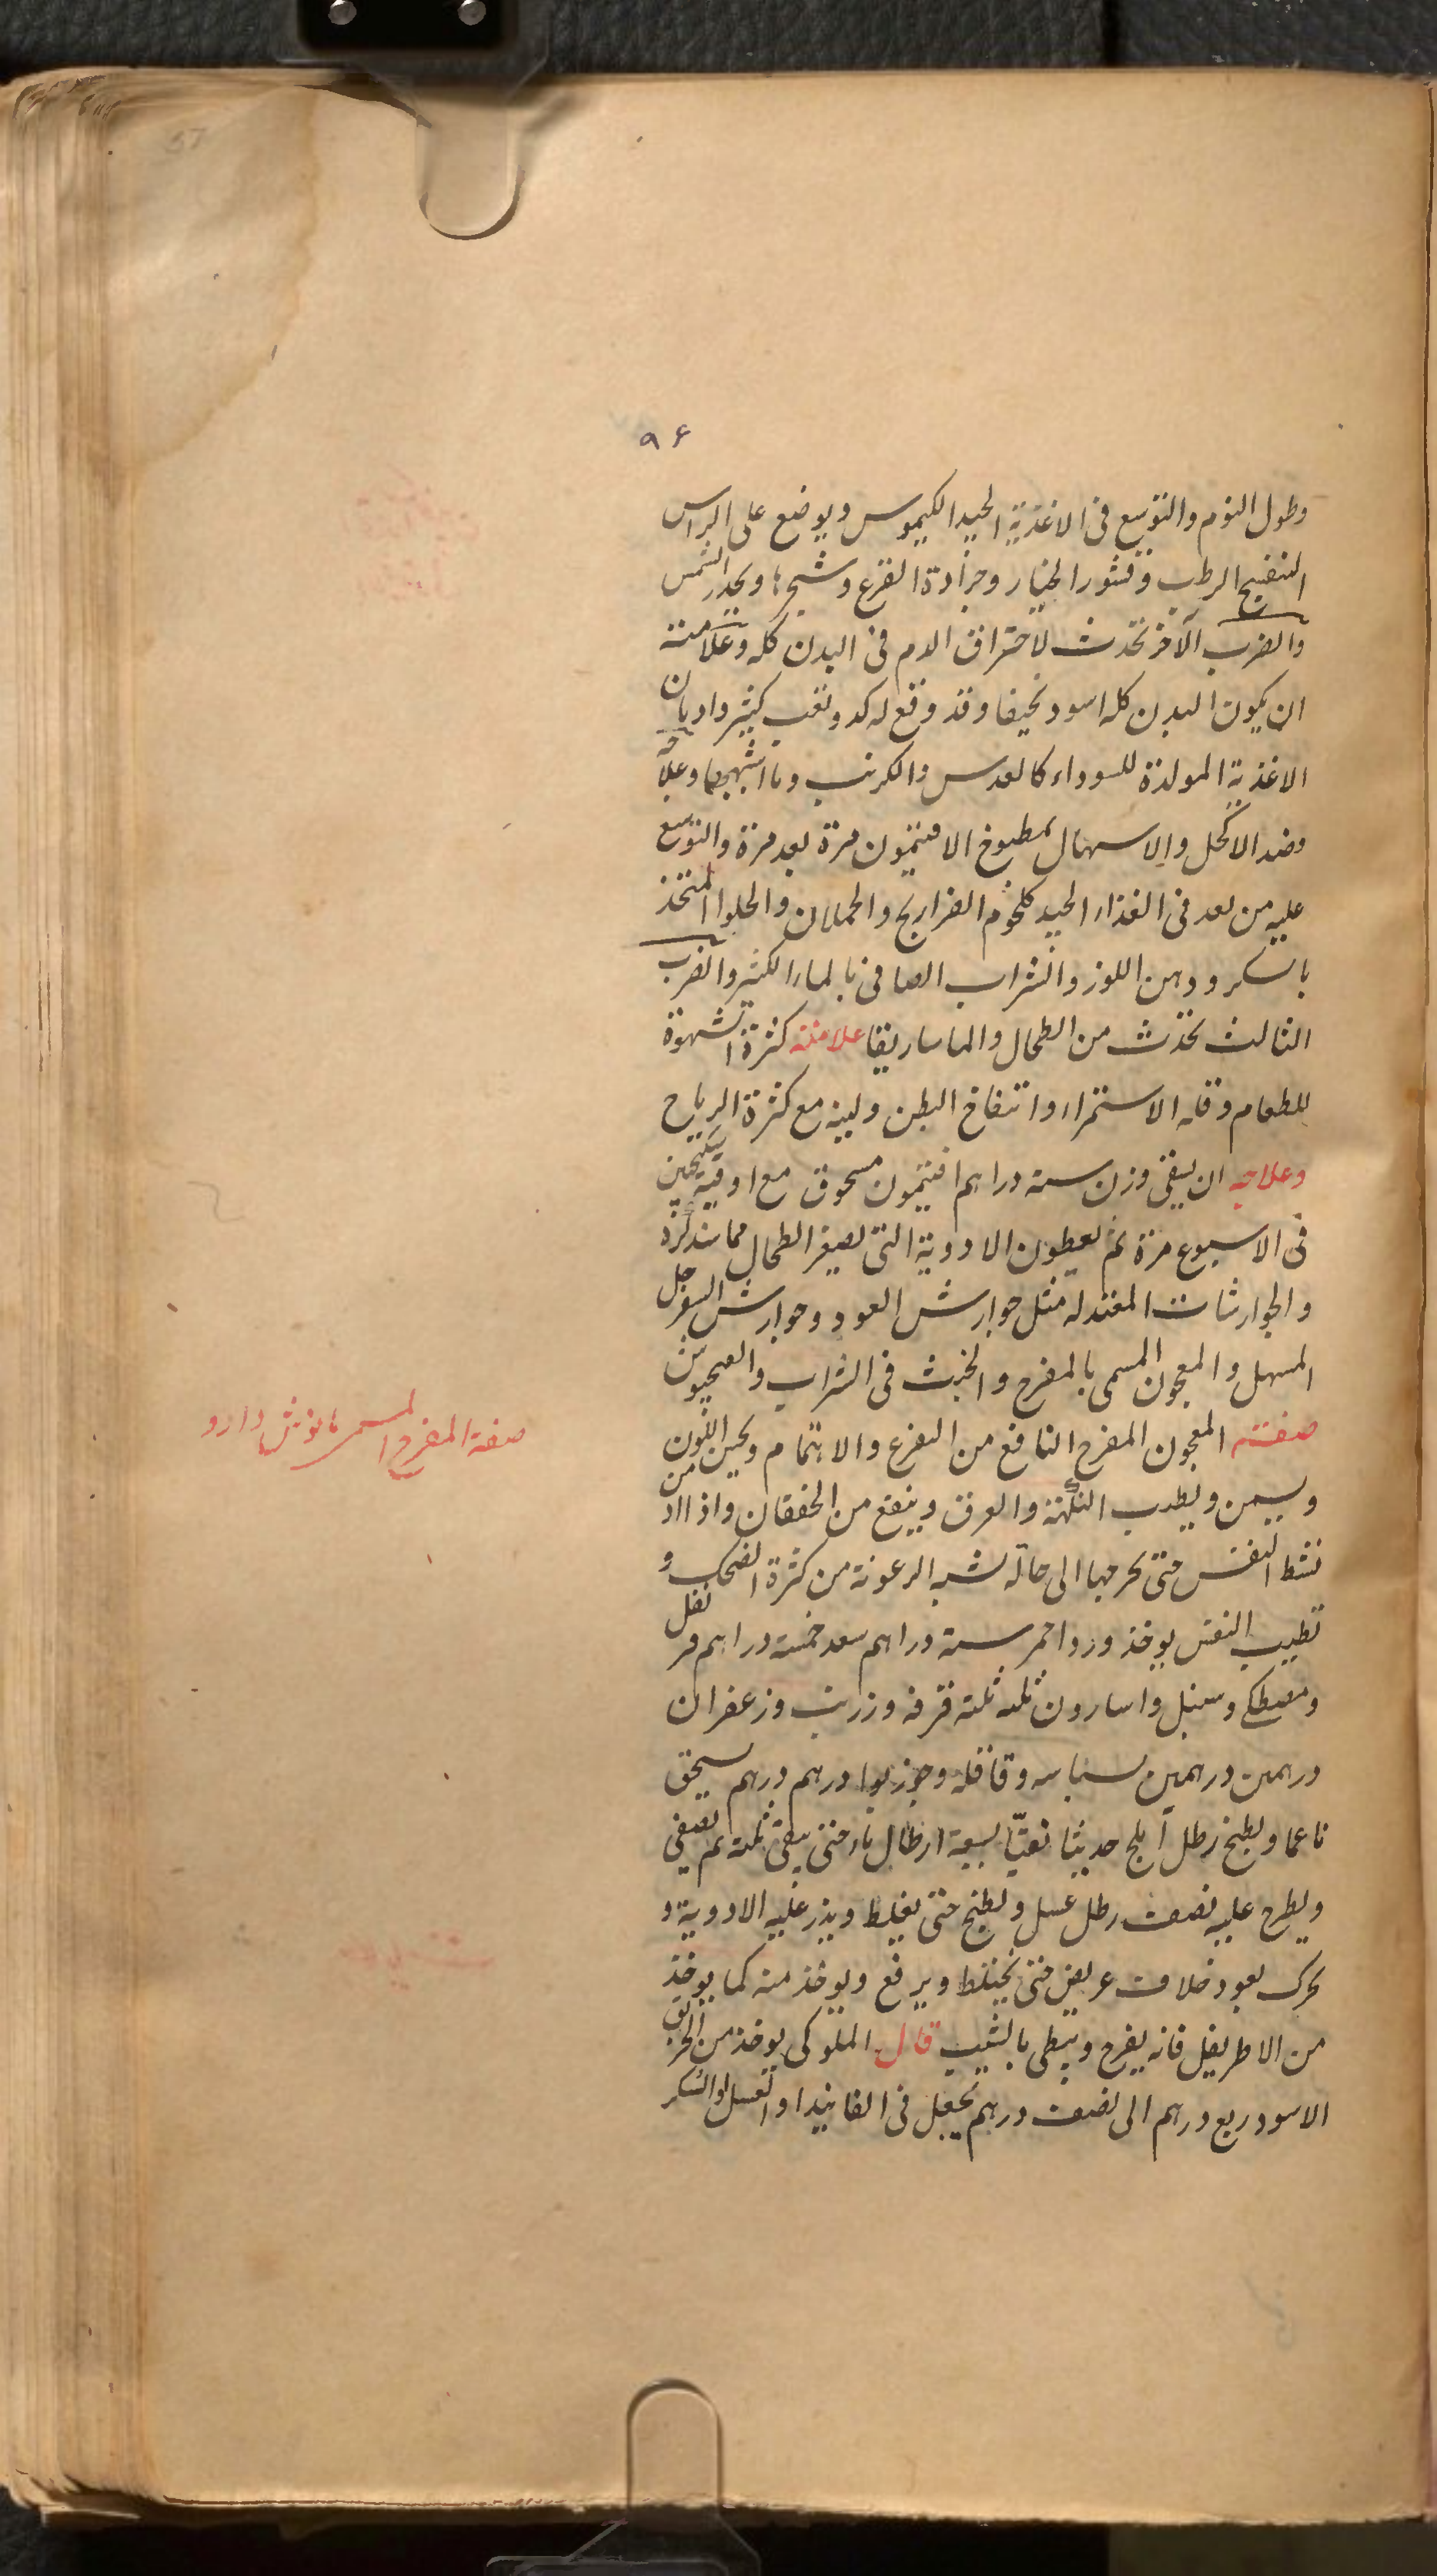 ٩٤
وطول النوم والتوسع فى الاغذية الجيد الكيموس ويوضع على الراس
البنفسج الرطب وقشور الخيار وجرادة القرع وشجرها ويحذر الشمس
والضرب الآخر تحدث لاحتراق الدم فى البدن كله وعلامته
ان يكون البدن كله اسود نحيفا وقد وقع له كد وتعب كثير وادمان
الاغذية المولدة للسوداء كالعدس والكرنب وما اشبهها وعلاجه
فصد الاكحل والاسهال بمطبوخ الافتيمون مرة بعد مرة والتوسع
عليه من بعد فى الغذاء الجيد كلحوم الفراريج والحملان والحلوا المتخذ
بالسكر ودهن اللوز والشراب الصافى بالماء الكثير والضرب
الثالث تحدث من الطحال والماساريقا علامته كثرة الشهوة
للطعام وقلة الاستمراء وانتفاخ البطن ولينه مع كثرة الرياح
وعلاجه ان يسقى وزن ستة دراهم افتيمون مسحوق مع اوقية سكنجبين
فى الاسبوع مرة ثم يعطون الادوية التى تصغر الطحال مما سنذكره
والجوارشات المعتدله مثل جوارش العود وجوارش السفرجل
المسهل والمعجون المسمى بالمفرح والخبث فى الشراب والصحبوش
صفته المعجون المفرح النافع من الفزع والاهتمام ويحسن اللون
ويسمن ويطيب النكهة والعرق وينفع من الخفقان واذا ادمن
نشط النفس حتى يخرجها الى حالة شبه الرعونة من كثرة الضحك و
تطييب النفس يوخذ ورد احمر ستة دراهم سعد خمسة دراهم قرنفل
ومصطكى وسنبل واسارون ثلثه ثلثه قرفه وزرنب وزعفران
درهمين درهمين بسباسه وقاقله وجوز بوا درهم درهم يسحق
ناعما ويطبخ رطل آملج حديثا نقيّا بسبعة ارطال ماء حتى يبقى ثلثه ثم يصفى
ويطرح عليه نصف رطل عسل ويطبخ حتى يغلظ ويذر عليه الادوية و
يحرك بعود خلاف عريض حتى يختلط ويرفع ويوخذ منه كما يوخذ
من الاطريفل فانه يفرح ويبطى بالشيب قال الملوكى يوخذ من الخربق
الاسود ربع درهم الى نصف درهم يجعل فى الفانيذ او العسل او السكر
صفة المفرح المسمى بانوش دارو